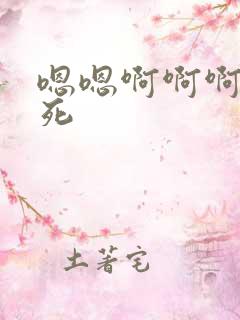 嗯嗯啊啊啊
死
土著宅